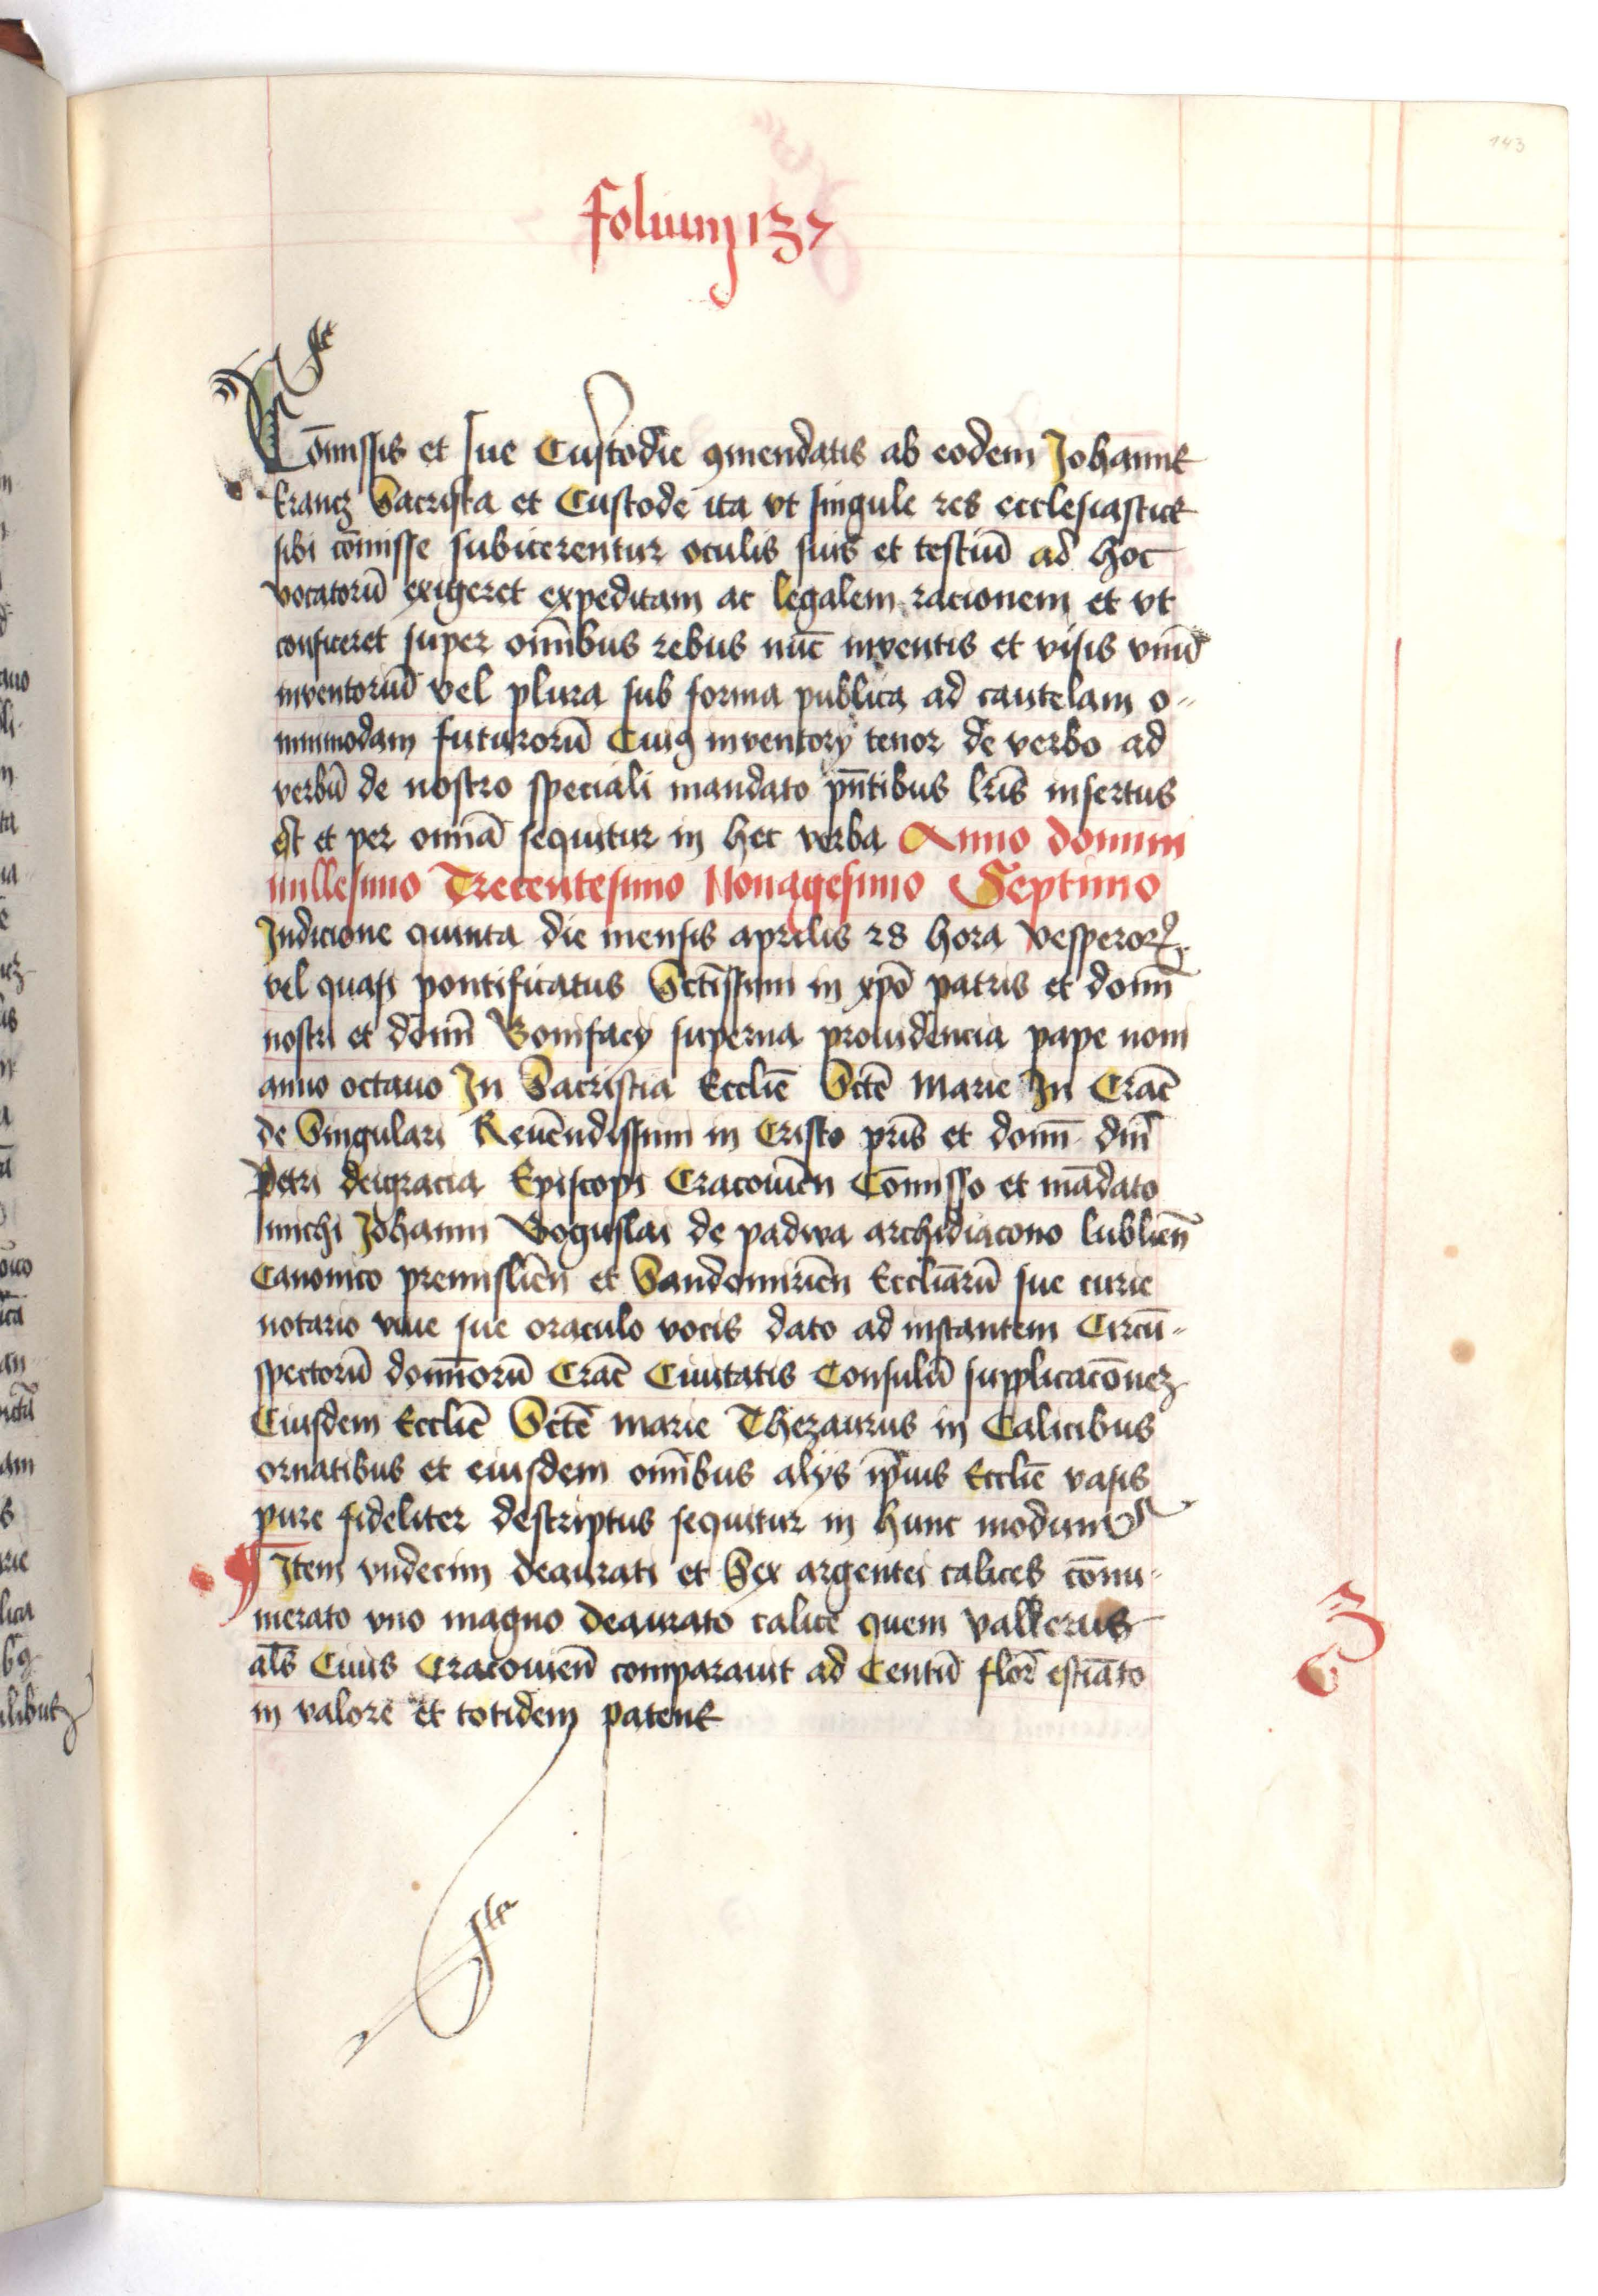 143
folium 137
Com̄issis et sue Custodie ꝯmendatis ab eodem Johanne
krancz Sacrista et Custode ita vt singule res ecclesiastice
sibi com̄isse subicerentur oculis suis et testiū ad hoc
vocatorū exigeret expeditam ac legalem racionem et vt
conficeret super om̄ibus rebus nūc inventis et visis vnū
inventoriū vel plura sub forma publica ad cautelam o-
mnimodam futurorū Cuiꝯ inventory tenor de verbo ad
verbū de nostro speciali mandato pn̄tibus lr̄is insertus
est et per omnā sequitur in hec verba Anno domini
millesimo Trecentesimo Nonagesimo Septimo
Indicione quinta die mensis aprilis 28 hora vesperorꝝ
vel quasi pontificatus Sctīssimi in xpō patris et domī
nostri et domī Bonifacy superna prouidencia pape noni
anno octauo In Sacristia Ecclīe Sctē Marie In Crac̄
de Singulari Reuēndissimi in Cristo pr̄is et domī dn̄i
Petri deigracia Episcopi Cracouien̄ Com̄isso et mādato
michi Johanni Boguslai de padwa archidiacono lublien̄
Canonico premislien̄ et Sandomirien̄ Eccliarū sue curie
notario viue sue oraculo vocis dato ad instantem Circū-
spectorū dominorū Crac̄ Ciuitatis Consulū supplicacōnez
Eiusdem Ecclīe Sctē Marie Thezaurus in Calicibus
ornatibus et eiusdem om̄ibus alys ip̄ius Ecclīe vasis
pure fideliter descriptus sequitur in hunc modum
Item vndecim deaurati et Sex argentei calices cōnu-
merato vno magno deaurato calice quem valkerus
al̄s Ciuis Cracouien̄ comparauit ad Centū flor̄ estiāto
in valore et totidem patene